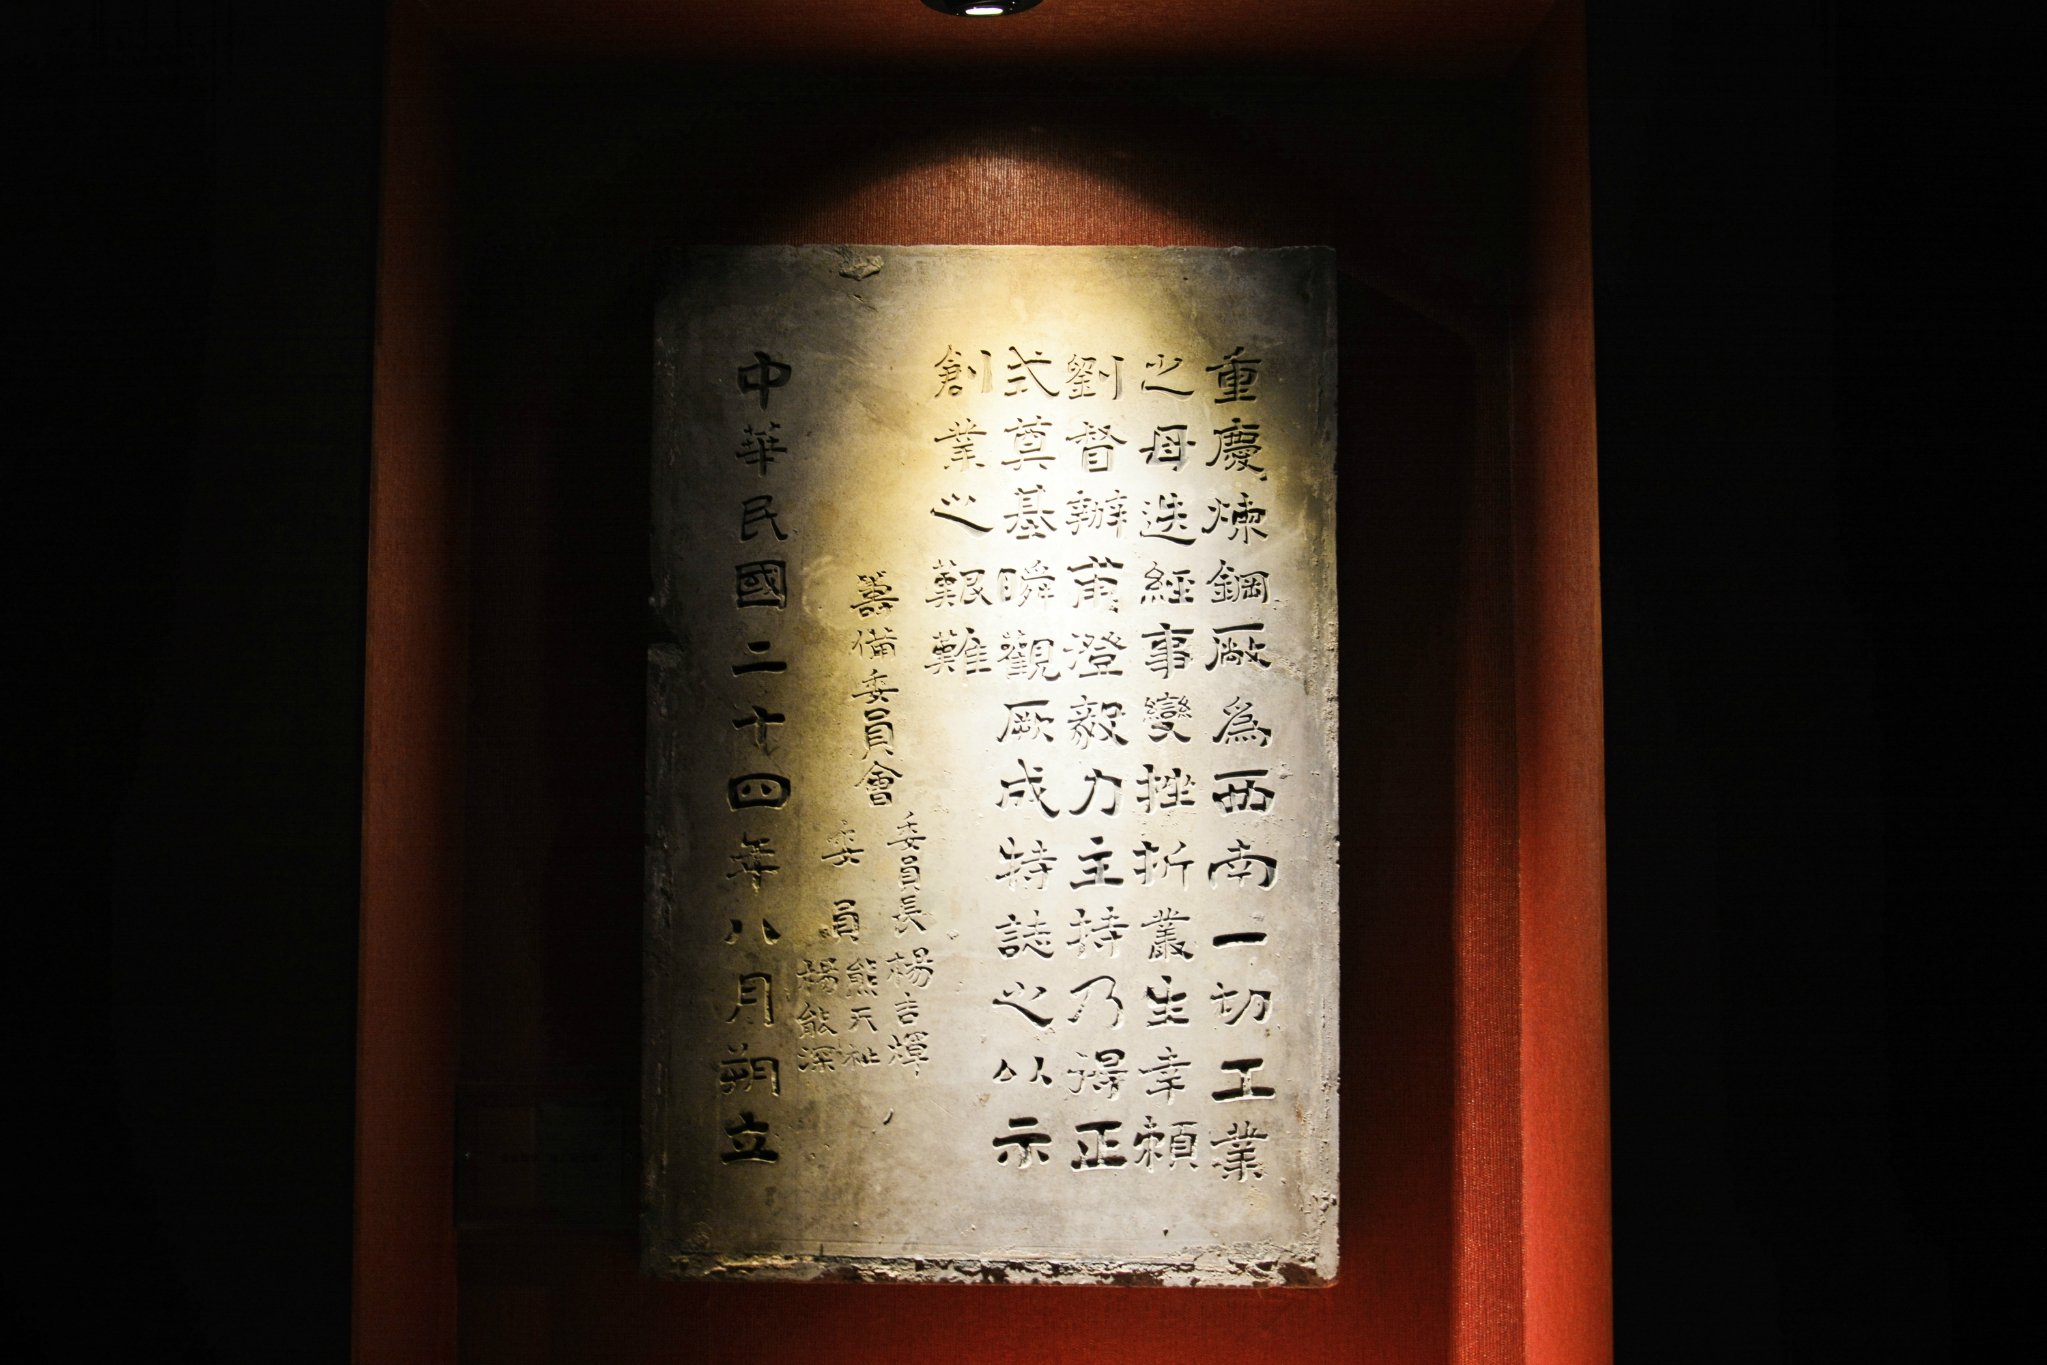 重慶煉鋼廠為西南一切工業
之母迭經事變挫折叢生幸賴
劉督辦甫澄毅力主持乃得正
式奠基瞬觀厥成特誌之以示
創業之艱難
籌備委員會
委員長楊吉輝
委員熊天祉
楊能深
中華民國二十四年八月朔立